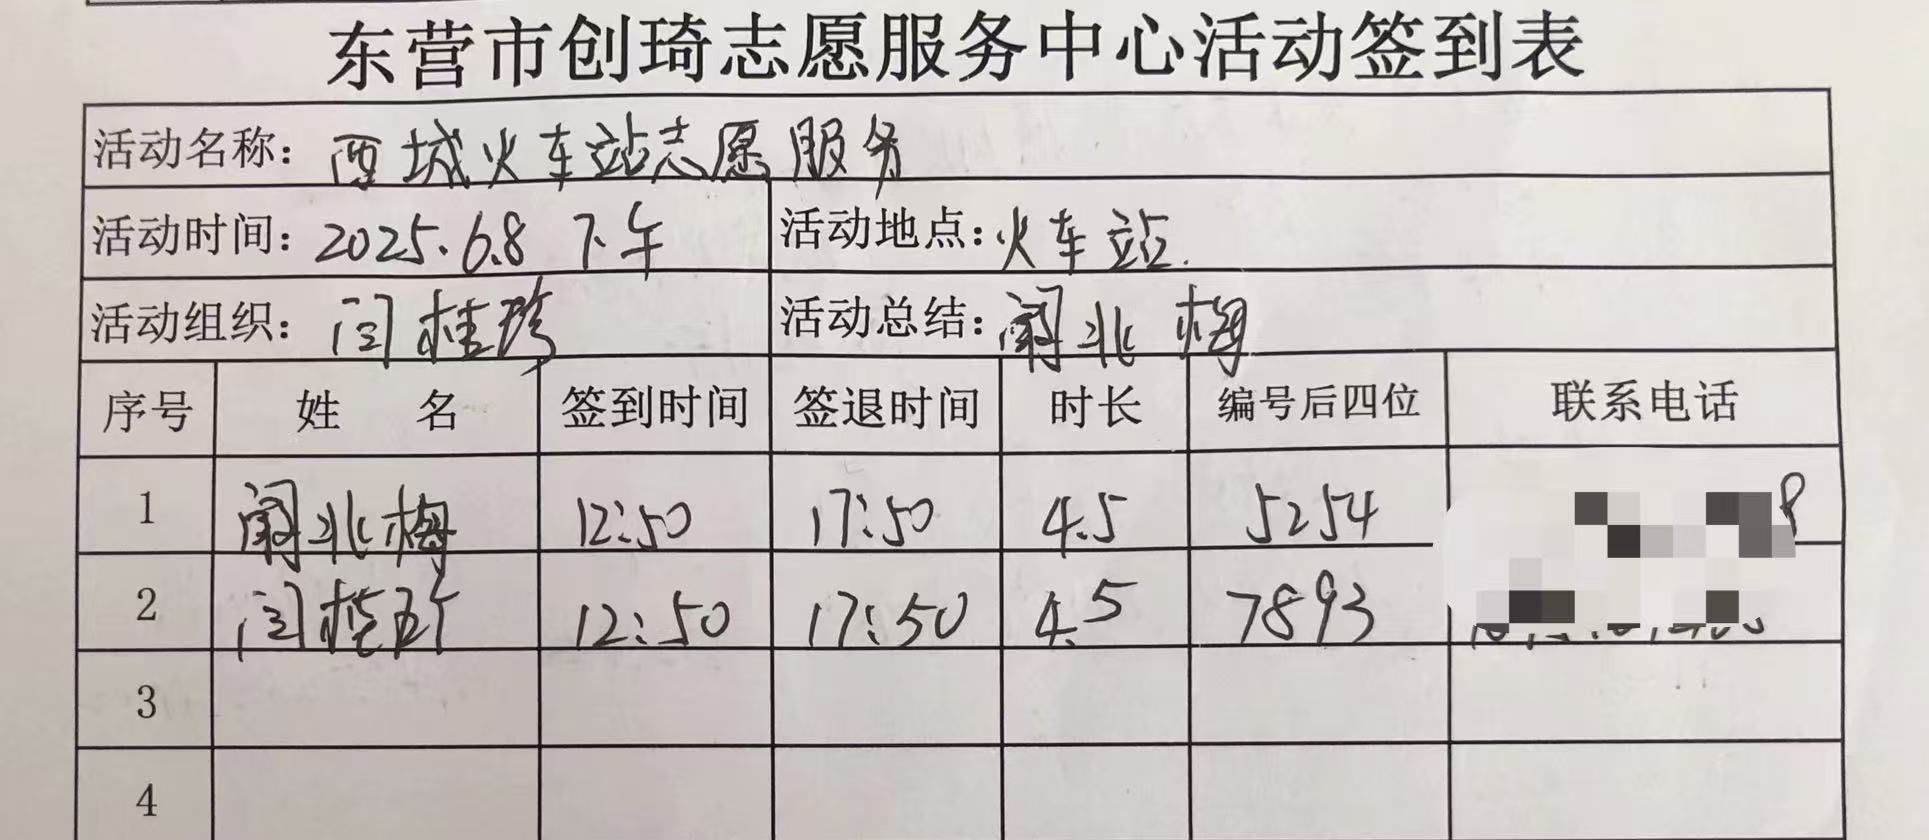 东营市创琦志愿服务中心活动签到表
活动名称：西城火车站志愿服务
活动时间：2025.6.8 下午 活动地点：火车站.
活动组织：闫桂珍 活动总结：北梅
序号 姓 名 签到时间 签退时间 时长 编号后四位 联系电话
1 北梅 12:50 17:50 4.5 5254
2 闫桂 12:50 17:50 4.5 7893
3
4